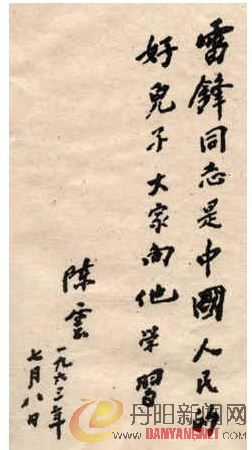 雷鋒同志是中國人民的
好兒子大家向他学習
陈雲
一九六三年
七月八日
丹阳新闻网
WWW.DANYANG.NET